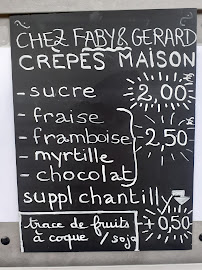 CHEZ FABY & GERARD
CRÈPES MAISON
- sucre 2,00
- fraise
- framboise 2,50
- myrtille
- chocolat
suppl chantilly
+ 0,50
trace de fruits
à coque / soja